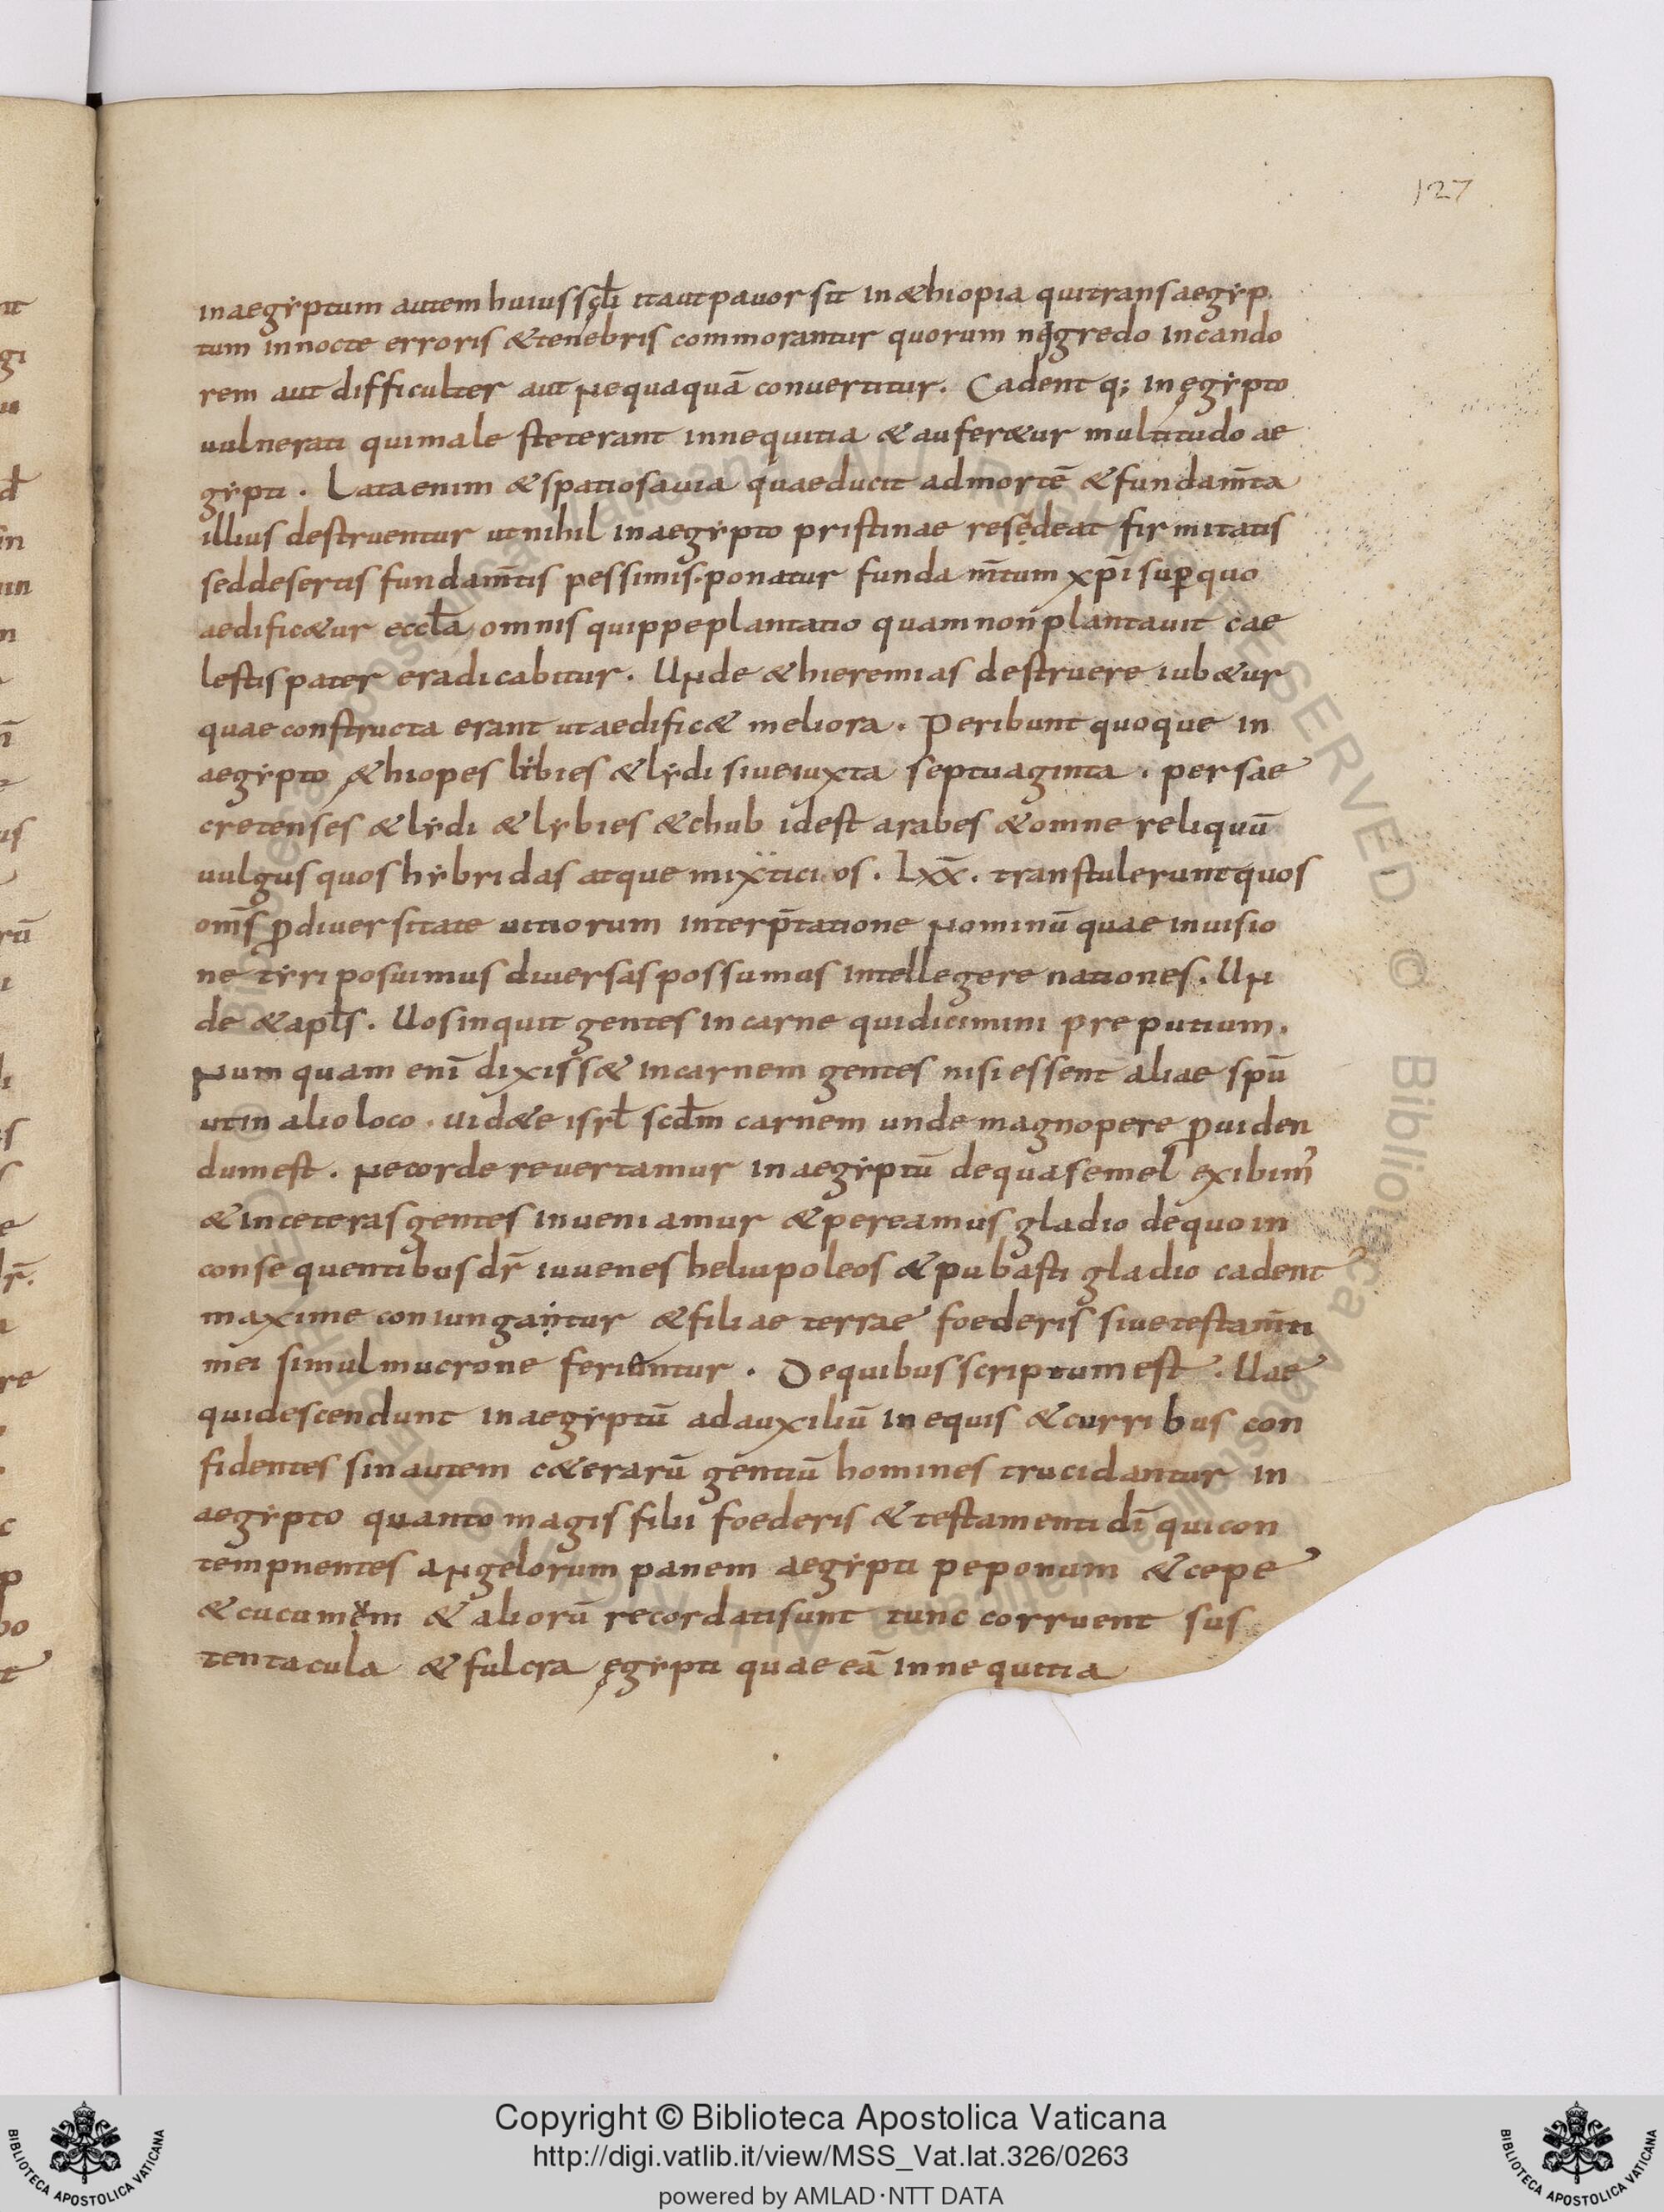 127
in aegyptum autem huius scli ita ut pauor sit in &hiopia qui trans aegyp
tum in nocte erroris & tenebris commorantur quorum nigredo in cando
rem aut difficulter aut nequaquā conuertitur. Cadent q; in ęgypto
uulnerati qui male steterant in nequitia & aufer&ur multitudo ae
gypti. Lata enim & spatiosa uia quae ducit ad mortē & fundam̄ta
illius destruentur ut nihil in aegypto pristinae resedeat firmitatis
sed desertis fundam̄tis pessimis. ponatur fundam̄tum xp̄i sup quo
aedific&ur eccła omnis quippe plantatio quam non plantauit cae
lestis pater eradicabitur. Unde & hieremias destruere iub&ur
quae constructa erant ut aedific& meliora. Peribunt quoque in
aegypto &hiopes libies & lydi siue iuxta septuaginta. persae
cretenses & lydi & lybies & chub id est arabes & omne reliquū
uulgus quos hybridas atque mixticios. Lxx̄. transtulerunt quos
om̄s p diuersitate uitiorum interp̄tatione nominū quae in uisio
ne tyri posuimus diuersas possumus intellegere nationes. Un
de & apłs. Uos inquit gentes in carne qui dicimini preputium.
Numquam enī dixiss& in carnem gentes nisi essent aliae spū
ut in alio loco. uid&e isrł scdm carnem unde magnopere puiden
dum est. Ne corde reuertamur in aegyptū de qua semel exibim᾽
& in ceteras gentes inueniamur & pereamus gladio de quo in
consequentibus dr̄ iuuenes heliupoleos & pubasti gladio cadent
maxime coniungantur & filiae terrae foederis siue testam̄ti
mei simul mucrone feriantur. De quibus scriptum est. Uae
qui descendunt in aegyptū ad auxiliū in equis & curribus con
fidentes sin autem c&erarū gentiū homines trucidantur in
aegypto quanto magis filii foederis & testamenti dī qui con
tempnentes angelorum panem aegypti peponum & cepe
& cucumem & aliorū recordati sunt tunc corruent sus
tentacula & fulcra ęgypti quae eā in nequitia
Copyright © Biblioteca Apostolica Vaticana
http://digi.vatlib.it/view/MSS_Vat.lat.326/0263
powered by AMLAD·NTT DATA
BIBLIOTECA APOSTOLICA VATICANA
BIBLIOTECA APOSTOLICA VATICANA